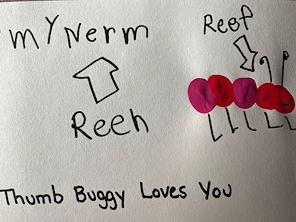 mYNerm
Reef
Reeh
Thumb Buggy Loves You